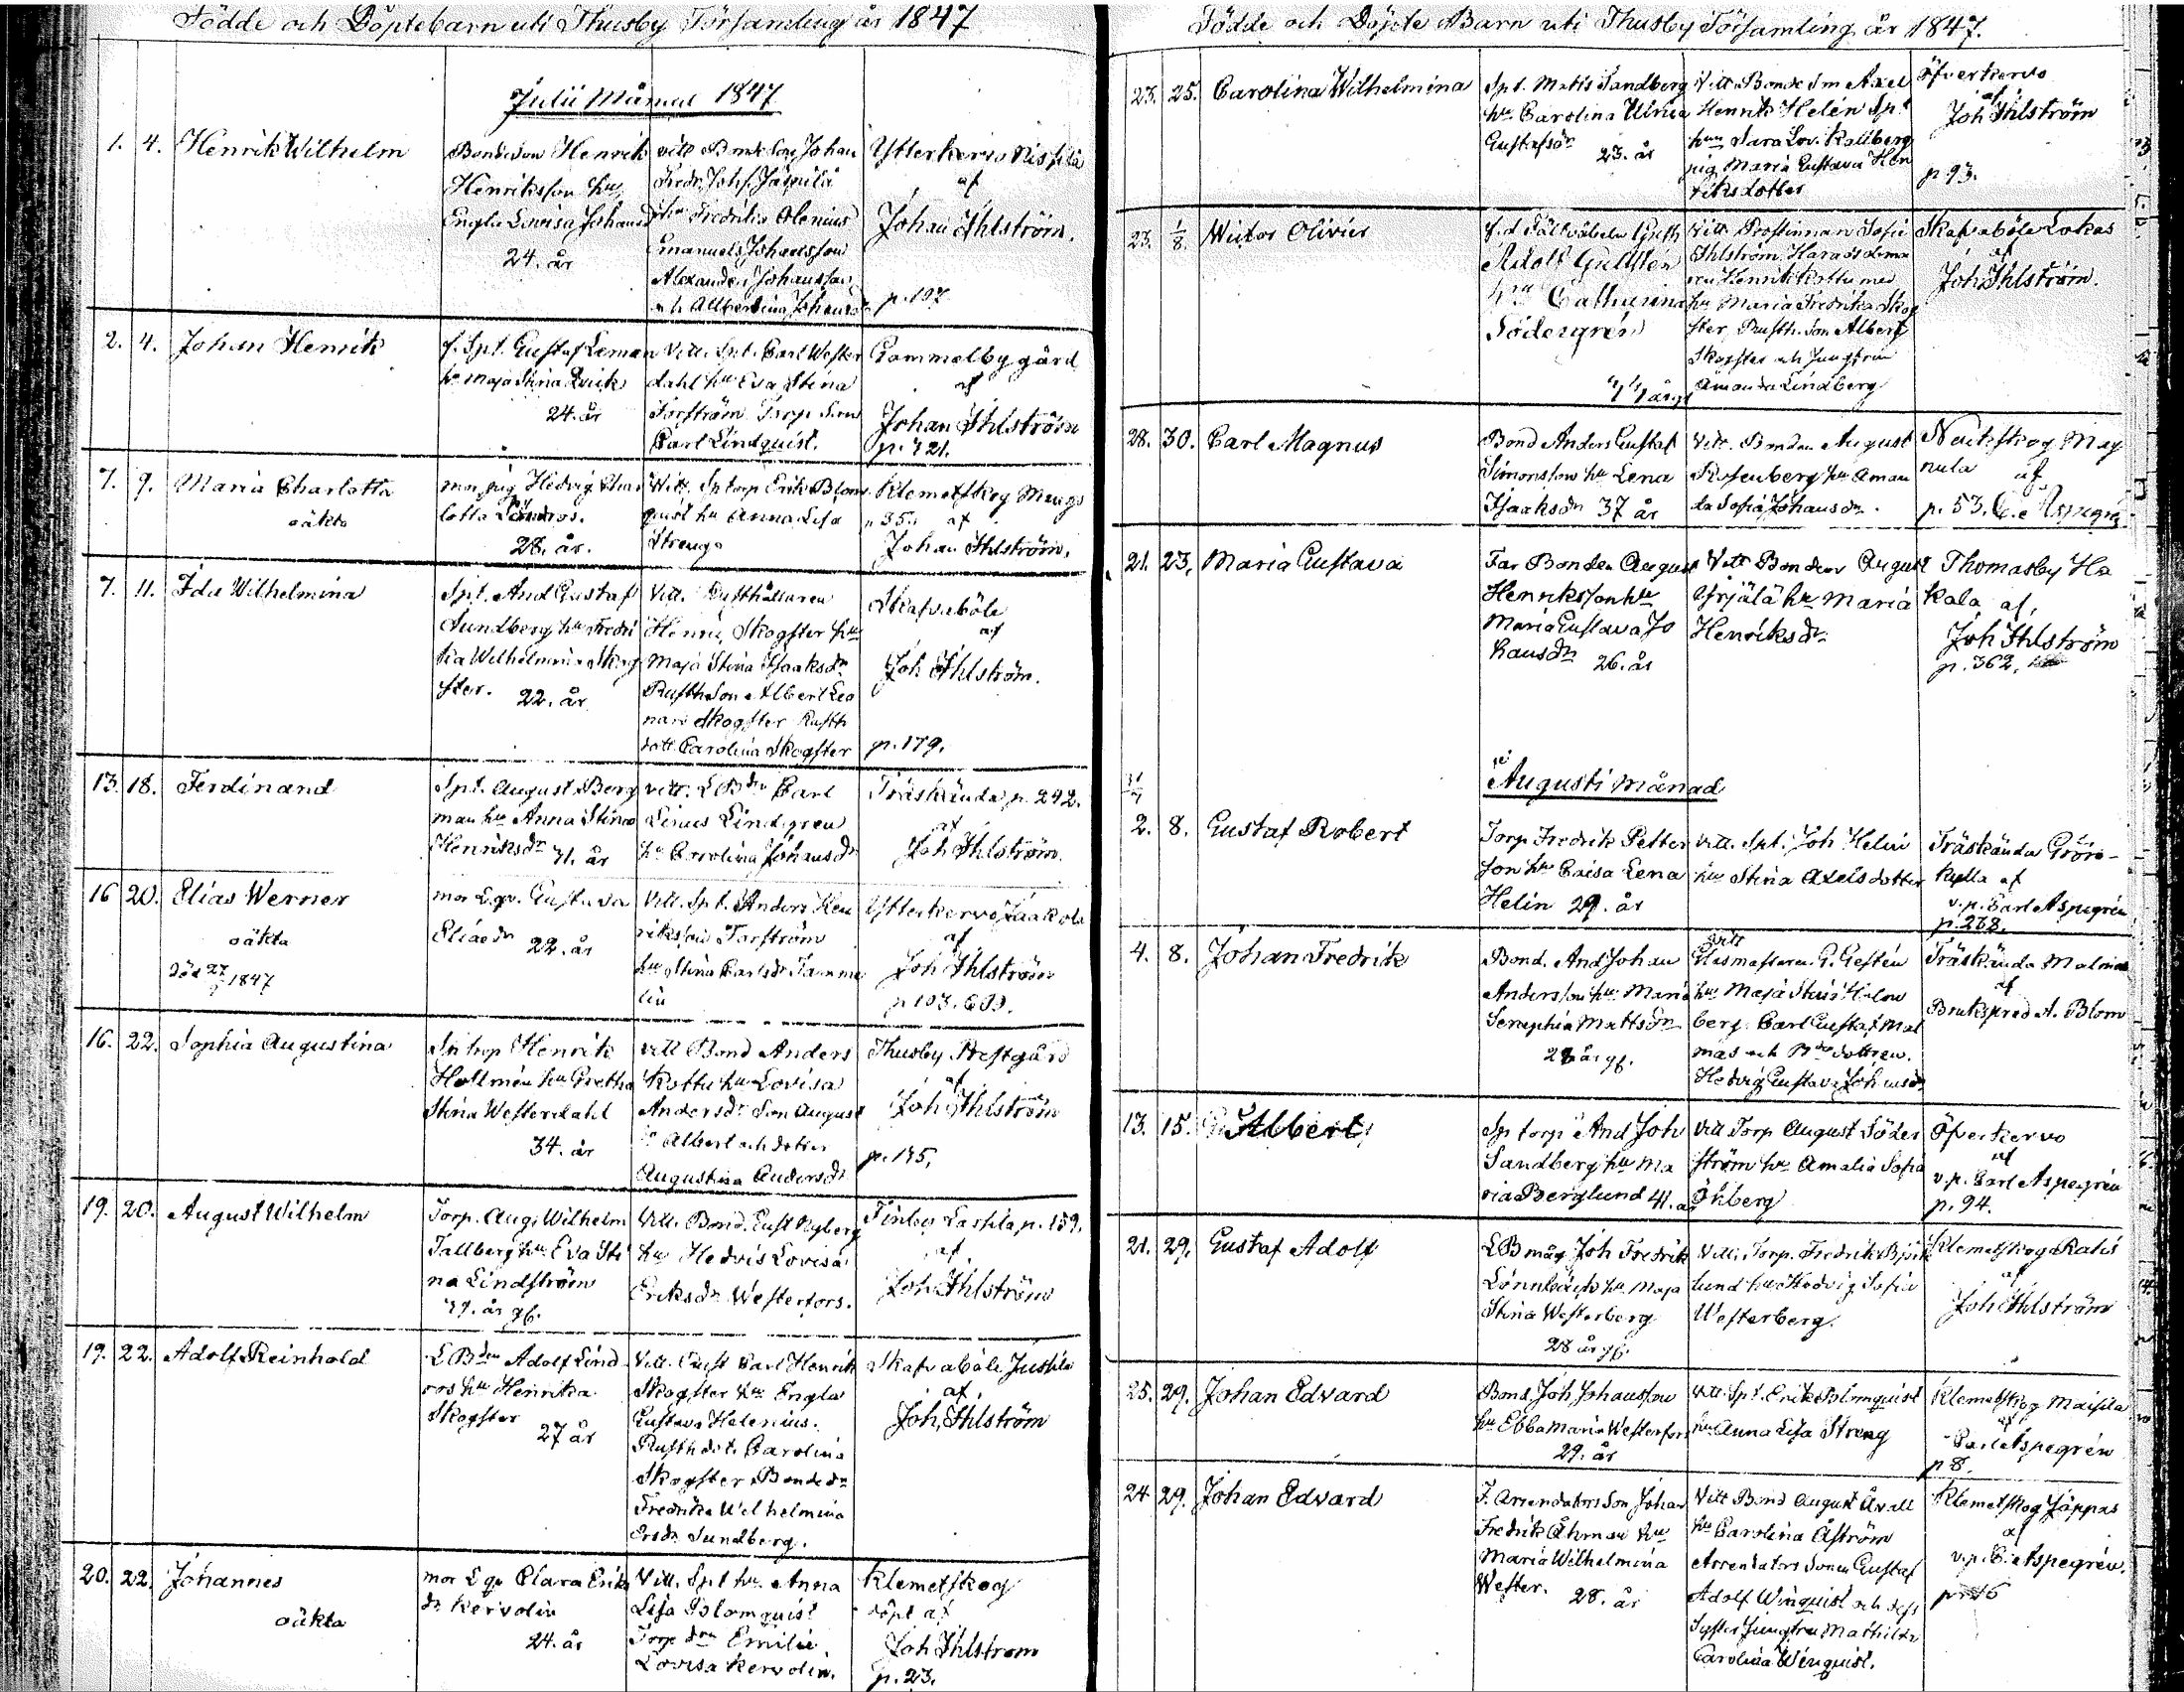 Födde och Döpte barn uti Thusby Församling år 1847
Julii Månad 1847
1. 4. Henrik Wilhelm
Bondeson Henrik
Henriksson hu
Engla Lovisa Johansd
24. år
vitt Bondeson Johan
Fredr. Johs. Jäppilä
hu Fredrika Alenius
Emanuel Johansson
Alexander Johansson
och Albertina Johansd
Ytterkervo Nissilä
af
Johan Ihlström.
p. 197
2. 4. Johan Henrik
f. Spt. Gustaf Leman
hu Maja Stina
24. år
Vitt. Spt. Carl Wester
dahl hu Eva Stina
Forsström Torp Son
Carl Lindquist.
Gammelby gård
af
Johan Ihlström
p. 421.
7. 9. Maria Charlotta
oäkta
mor pig Hedvig Char
lotta
28. år.
Vitt. Sp torp Erik Blom
quist hu Anna Lisa
Streng.
Klemetskog Mengs
p. 35. af
Johan Ihlström.
7. 11. Ida Wilhelmina
Spt. And Gustaf
Sundberg hu Fredri
ka Wilhelmina Skog
ster. 22. år
Vitt. Rusthållaren
Henric Skogster hu
Maja Stina Isaksdr
Rusth Son Albert Leo
nard Skogster Rusth
dott. Carolina Skogster
Skafvaböle
af
Joh Ihlström.
p. 179.
13. 18. Ferdinand
Spt. August Berg
man hu Anna Stina
Henriksdr 41. år
vitt. LBdn Carl
Linus Lindgren
hu Carolina Johansdr
Träskända p. 242.
af
Joh Ihlström.
16 20. Elias Werner
oäkta
död 27/9 1847
mor Lqv. Gustava
Eliaedr 22. år
Vitt. Spt. Anders Hen
riksson Torström
hu Stina Carlsdr Tamme
lin
Ytterkervo Jaakola
af
Joh Ihlström
p 103. 603.
16. 22. Sophia Augustina
Sp torp Henrik
Hellmén hu Gretha
Stina Westerdahl
34. år
vitt Bond Anders
Rottu hu Lovisa
Andersdr Son August
Albert och dotter
Augustina Andersdr
Thusby Prestgård
af
Joh Ihlström
p. 195.
19. 20. August Wilhelm
Torp. Aug. Wilhelm
Tallberg hu Eva Sti
na Lindström
41. år gb.
Vitt. Bond. Gust Nyberg
hu Hedvig Lovisa
Eriksdr Westerfors.
Finby Lassila p. 159.
af
Joh Ihlström
19. 22. Adolf Reinhold
LBdn Adolf Lind
ros hu Henrika
Skogster
27 år
Vitt. Rust Carl Henrik
Skogster hu Engla
Gustava Helenius.
Rusth dott. Carolina
Skogster Bondedr
Fredrika Wilhelmina
Sundberg.
Skafvaböle Jussila
af
Joh. Ihlström
20. 22. Johannes
oäkta
mor Lqv Clara Eriks
dr Kervolin
24. år
Vitt. Spt hu Anna
Lisa Blomquist
Torp drn Emilie
Lovisa Kervolin.
Klemetskog
döpt af
Joh Ihlström
p. 23.
Födde och Döpte Barn uti Thusby Församling år 1847.
23. 25. Carolina Wilhelmina
Spt. Matts Sandberg
hu. Carolina Ulrica
Gustafsdr
23. år
Vitt. Bonde Son Axel
Henrik Helén Spt
hun Sara Lov. Kallberg
pig. Maria Gustava Hen
riksdotter
Öfverkervo
af
Joh Ihlström
p. 93.
23. 1/8. Wictor Olivier
f.d Fältväbeln Gust
Adolf Gullsten
hu Catharina
Södergrén
44 år gb
Vitt. Prostinnan Sofie
Ihlström. Haradsdoma
ren Henrik Rottu med
hu Maria Fredrika Skog
ster, Rusth. Son Albert
Skogster och Jungfrun
Amanda Lindberg
Skafvaböle Lokas
af
Joh Ihlström.
28. 30. Carl Magnus
Bond Anders Gustaf
Simonsson hu Lena
Isaaksdr 37 år
Vitt. Bonden August
Rosenberg hu Aman
da Sofia Johansdr.
Nackskog Mag
nula af
p. 53. C. Aspegrén
21. 23. Maria Gustava
Far Bonden August
Henriksson hu
Maria Gustava Jo
hansdr 26. år
Vitt Bonden August
Yrjälä hu Maria
Henriksdr
Thomasby Ha
kala af,
Joh Ihlström
p. 362.
Augusti månad
31/7
2. 8. Gustaf Robert
Torp Fredrik Petter
son hu Caisa Lena
Helin 29. år
vitt. Spt. Joh Helin
hu Stina Axelsdotter
Träskända Grön-
kulla af
v. p. Carl Aspegrén
p. 238.
4. 8. Johan Fredrik
Bond. And Johan
Andersson hu Maria
Seraphia Mattsdr
28 år gb.
vitt
Glasmästaren G. Gestén
hu Maja Stina Holm
berg. Carl Gustaf Mal
mas och Bdr dottren
Hedvig Gustava Johansdr
Träskända Malmas
af
Brukspred A. Blom
13. 15. Albert
Sp torp And Joh
Sandberg hu Ma
ria Berglund 41. år
Vitt Torp August Söder
ström hu Amalia Sofia
Öhberg
Öfverkervo
af
v. p. Carl Aspegrén
p. 94.
21. 29. Gustaf Adolf
LB måg Joh Fredrik
Lönnbäck hu Maja
Stina Westerberg
28 år gb.
Vitt. Torp. Fredrik Björk
lund hu Hedvig Sofia
Westerberg.
Klemetskog Ralis
af
Joh Ihlström
25. 29. Johan Edvard
Bond. Joh. Johansson
hu Ebba Maria Westerfors
29. år
vitt Spt. Erik Blomquist
hu Anna Lisa Streng
Klemetskog Maisila
af
Carl Aspegrén
p 8.
24 29. Johan Edvard
F. Arrendators Son Johan
Fredrik Åhman hu
Maria Wilhelmina
Wester. 28. år
Vitt Bond August Avall
hu Carolina Åström
Arrendators Sonen Gustaf
Adolf Winquist och dess
Syster Jungfru Mathilda
Carolina Winquist.
Klemetskog Jäppas
af
v. p. C. Aspegrén.
p. 16